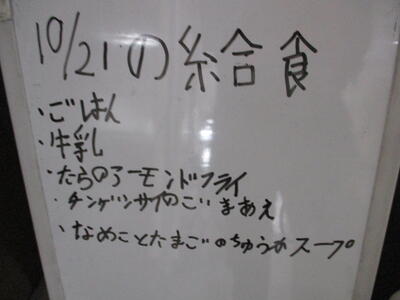 10/21の給食
・ごはん
・牛乳
・たらのアーモンドフライ
・チンゲンサイのごまあえ
・なめことたまごのちゅうかスープ